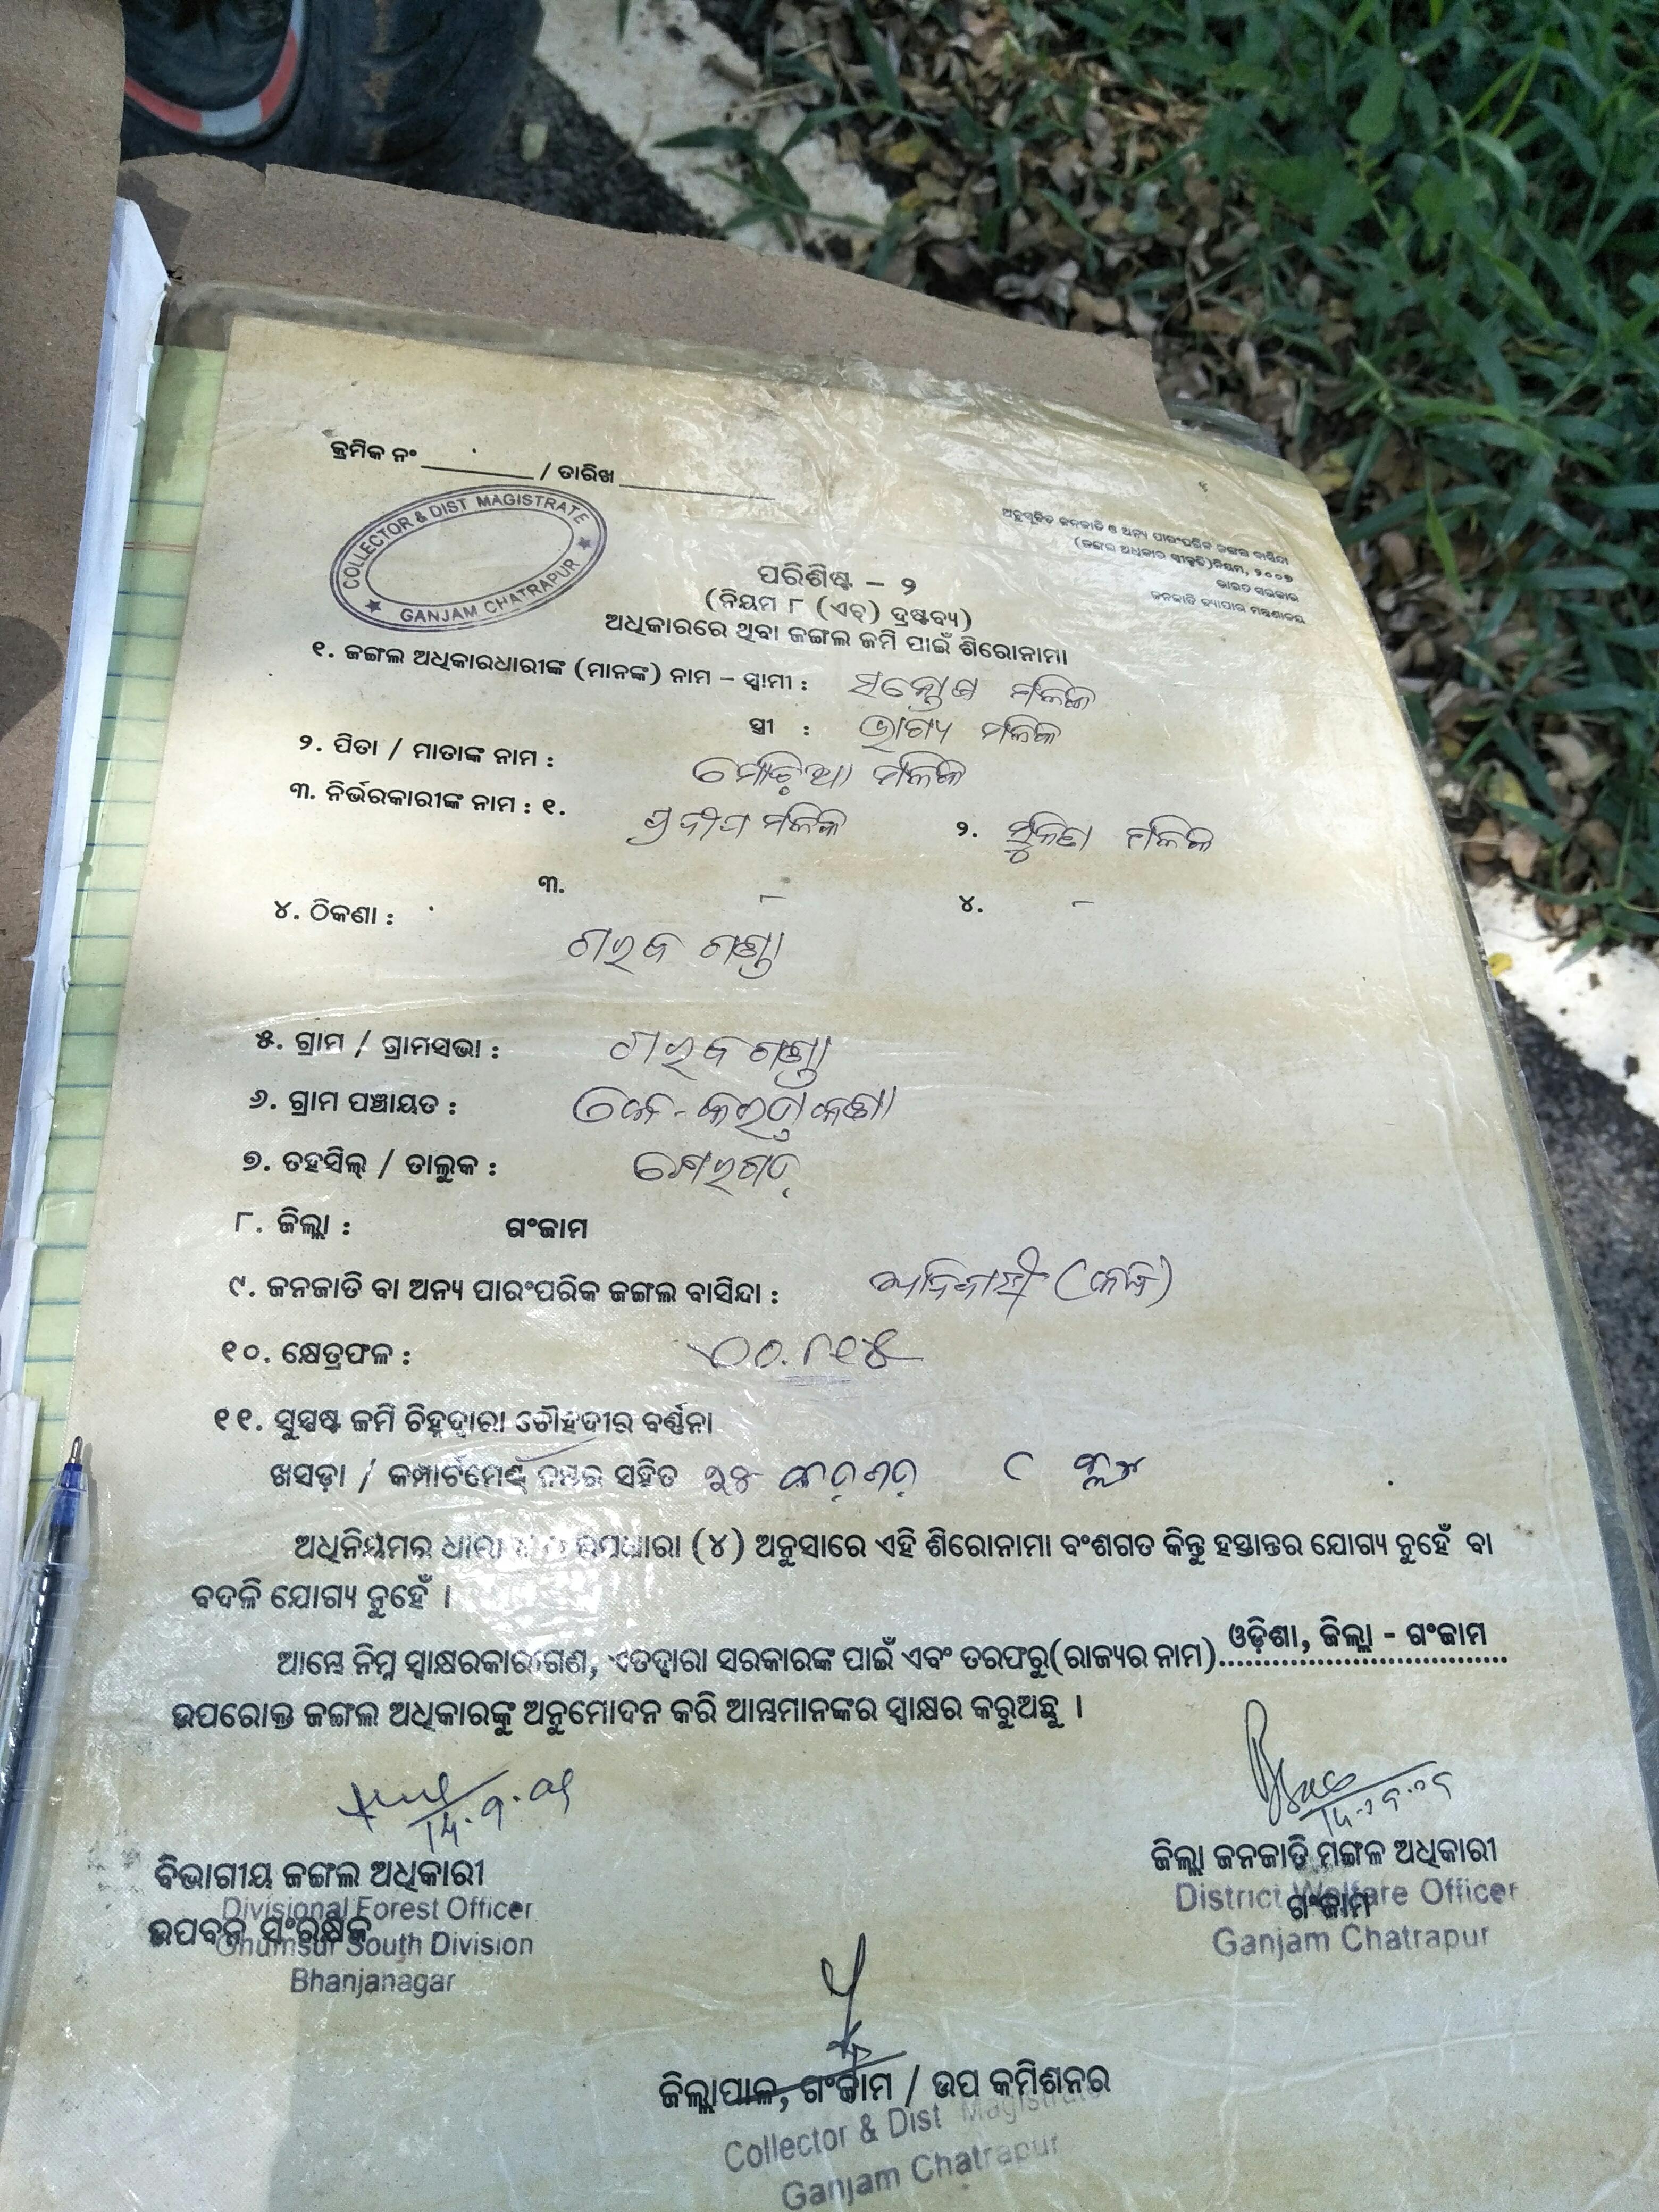 କ୍ରମିକ ନଂ ________ / ତାରିଖ ____________
COLLECTOR & DIST MAGISTRATE
GANJAM CHATRAPUR
ଅନୁସୂଚିତ ଜନଜାତି ଓ ଅନ୍ୟ ପାରଂପରିକ ଜଙ୍ଗଲ ବାସିନ୍ଦା
(ଜଙ୍ଗଲ ଅଧିକାର ସ୍ବୀକୃତି)ନିୟମ, ୨୦୦୭
ଭାରତ ସରକାର
ଜନଜାତି ବ୍ୟାପାର ମନ୍ତ୍ରଣାଳୟ
ପରିଶିଷ୍ଟ – ୨
(ନିୟମ ୮ (ଏଚ୍) ଦ୍ରଷ୍ଟବ୍ୟ)
ଅଧିକାରରେ ଥିବା ଜଙ୍ଗଲ ଜମି ପାଇଁ ଶିରୋନାମା
୧. ଜଙ୍ଗଲ ଅଧିକାରଧାରୀଙ୍କ (ମାନଙ୍କ) ନାମ – ସ୍ଵାମୀ : ସନ୍ତୋଷ ମଳିକ
ସ୍ତ୍ରୀ : ଭାଗ୍ୟ ମଳିକ
୨. ପିତା / ମାତାଙ୍କ ନାମ : ମଳିକ
୩. ନିର୍ଭରକାରୀଙ୍କ ନାମ : ୧. ମଳିକ ୨. ମଳିକ
୩. – ୪. –
୪. ଠିକଣା :
୫. ଗ୍ରାମ / ଗ୍ରାମସଭା :
୬. ଗ୍ରାମ ପଞ୍ଚାୟତ :
୭. ତହସିଲ୍ / ତାଲୁକ :
୮. ଜିଲ୍ଲା : ଗଂଜାମ
୯. ଜନଜାତି ବା ଅନ୍ୟ ପାରଂପରିକ ଜଙ୍ଗଲ ବାସିନ୍ଦା : ଆଦିବାସୀ
୧୦. କ୍ଷେତ୍ରଫଳ :
୧୧. ସୁସ୍ପଷ୍ଟ ଜମି ଚିହ୍ନଦ୍ୱାରା ଚୌହଦୀର ବର୍ଣ୍ଣନା
ଖସଡ଼ା / କମ୍ପାର୍ଟମେଣ୍ଟ ନମ୍ବର ସହିତ
ଅଧିନିୟମର ଧାରା ଉପଧାରା (୪) ଅନୁସାରେ ଏହି ଶିରୋନାମା ବଂଶଗତ କିନ୍ତୁ ହସ୍ତାନ୍ତର ଯୋଗ୍ୟ ନୁହେଁ ବା
ବଦଳି ଯୋଗ୍ୟ ନୁହେଁ ।
ଆମ୍ଭେ ନିମ୍ନ ସ୍ୱାକ୍ଷରକାରୀଗଣ, ଏତଦ୍ୱାରା ସରକାରଙ୍କ ପାଇଁ ଏବଂ ତରଫରୁ(ରାଜ୍ୟର ନାମ) ଓଡ଼ିଶା, ଜିଲ୍ଲା - ଗଂଜାମ
ଉପରୋକ୍ତ ଜଙ୍ଗଲ ଅଧିକାରଙ୍କୁ ଅନୁମୋଦନ କରି ଆମ୍ଭମାନଙ୍କର ସ୍ୱାକ୍ଷର କରୁଅଛୁ ।
ବିଭାଗୀୟ ଜଙ୍ଗଲ ଅଧିକାରୀ
Divisional Forest Officer
ଉପବନ ସଂରକ୍ଷକ
Ghumsur South Division
Bhanjanagar
ଜିଲ୍ଲା ଜନଜାତି ମଙ୍ଗଳ ଅଧିକାରୀ
District Welfare Officer
ଗଂଜାମ
Ganjam Chatrapur
ଜିଲ୍ଲାପାଳ, ଗଂଜାମ / ଉପ କମିଶନର
Collector & Dist Magistrate
Ganjam Chatrapur